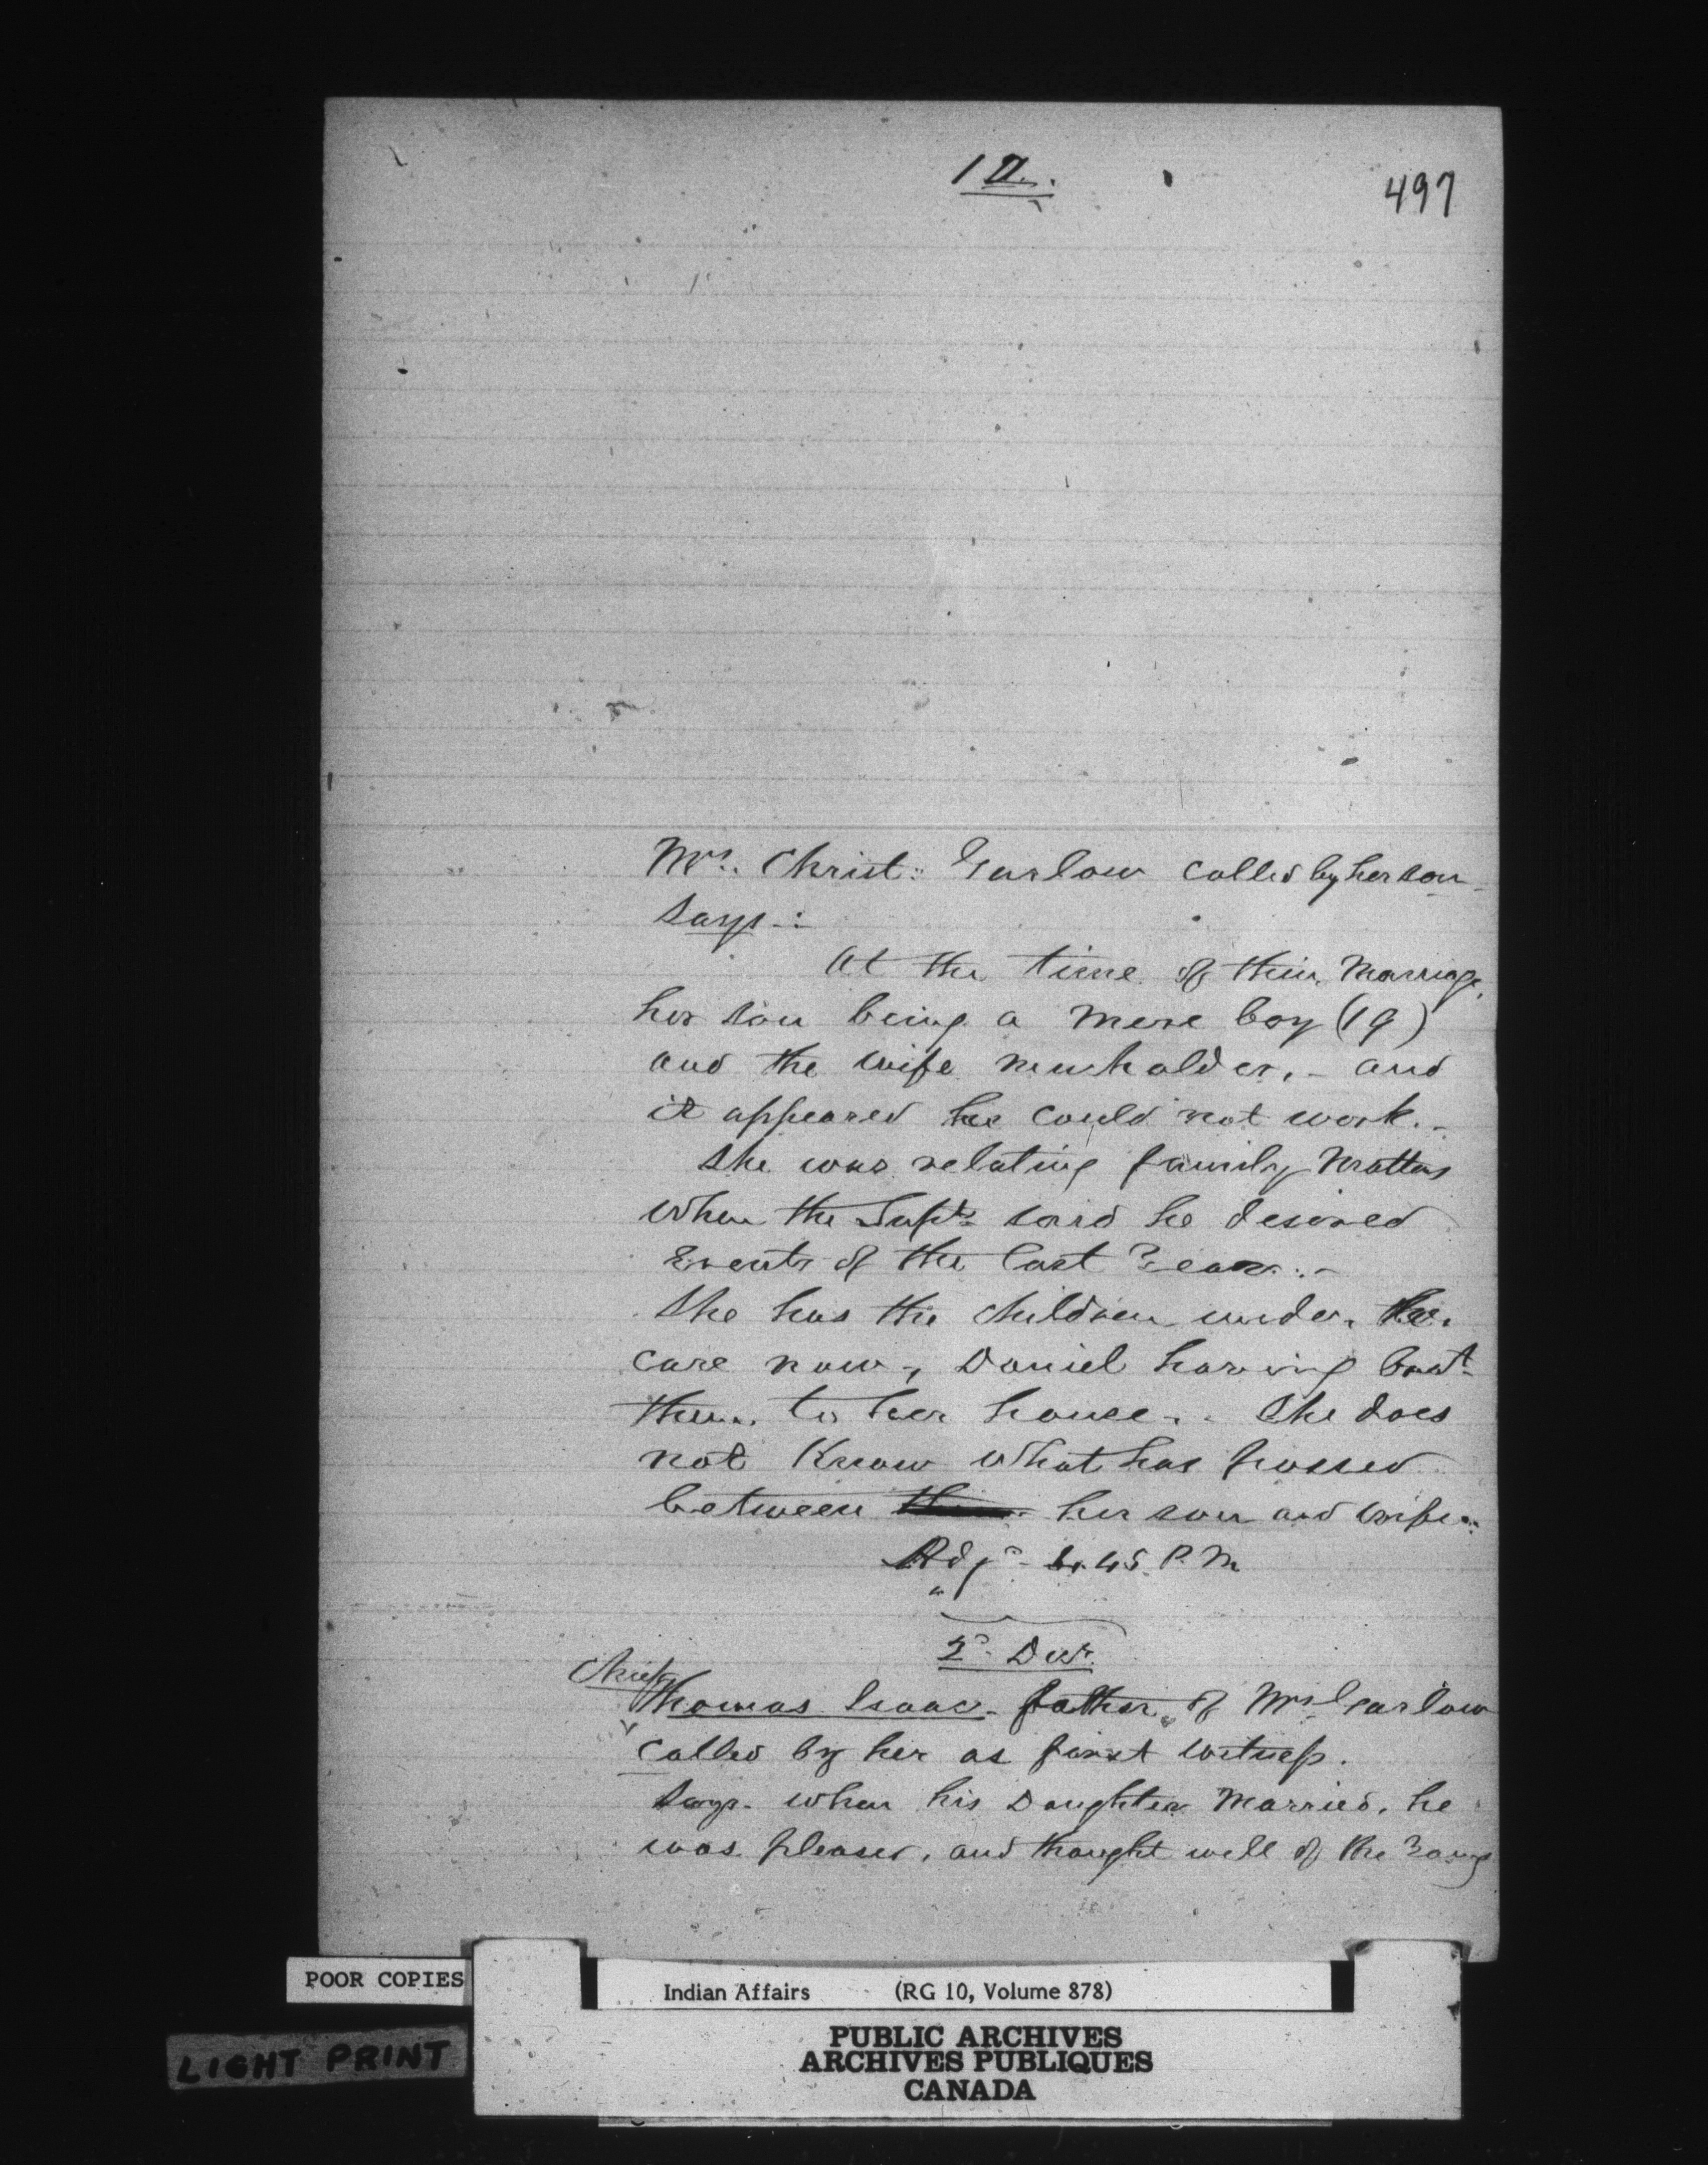 10.
497
Mrs. Christ: Garlow called by her son
Says -:
At the time of their Marriage,
her son being a mere boy (19)
and the wife much older. - and
it appeared he could not work. -
She was relating family Matters
When the Supt. said he desired
Events of the last Year. -
She has the children under her
care now, Daniel having brot
them to her house. She does
not Know what has passed
between her son and wife.
Adjd 4.45 P.M
2d Decr.
Chief
Thomas Isaac - father of Mrs Garlow
called by her as first witness.
Says - when his Daughter Married, he
was pleased, and thought well of the Young
POOR COPIES
LIGHT PRINT
Indian Affairs (RG 10, Volume 878)
PUBLIC ARCHIVES
ARCHIVES PUBLIQUES
CANADA